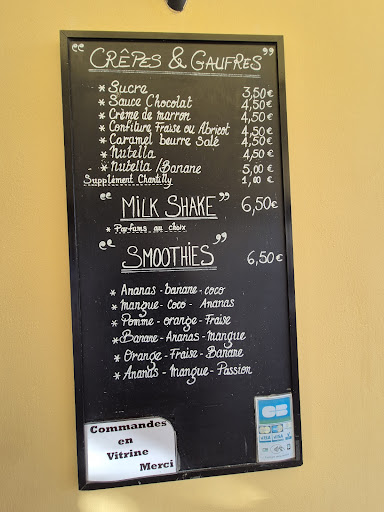 “CRÊPES & GAUFRES”
* Sucre 3,50€
* Sauce Chocolat 4,50€
* Crème de marron 4,50€
* Confiture Fraise ou Abricot 4,50€
* Caramel beurre Salé 4,50€
* Nutella 4,50€
* Nutella/Banane 5,00€
Supplément Chantilly 1,00€
“MILK SHAKE” 6,50€
* Parfums au choix
“SMOOTHIES” 6,50€
* Ananas - banane - coco
* Mangue - Coco - Ananas
* Pomme - orange - Fraise
* Banane - Ananas - Mangue
* Orange - Fraise - Banane
* Ananas - Mangue - Passion
Commandes
en
Vitrine
Merci
CB
VISA